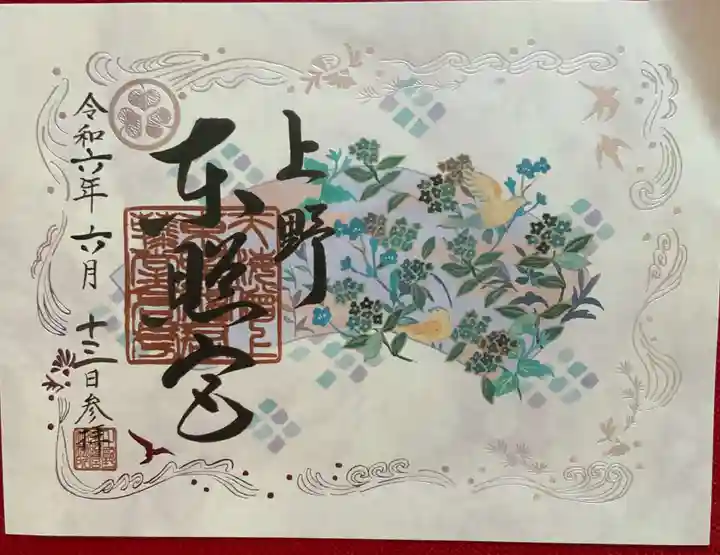 上野
東照宮
令和六年 六月 十三日参拝